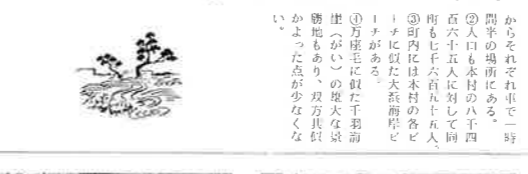 からそれぞれ車で一時
間半の場所にある。
②人口も本村の八千四
百六十五人に対して同
町も七千六百五十五人、
③町内には本村の各ビ
ーチに似た大浜海岸ビ
ーチがある。
④万座毛に似た千羽海
崖（がい）の壮大な景
勝地もあり、双方共似
かよった点が少なくな
い。